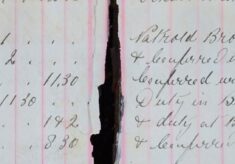 1 . . . . Patrold Bro
2 . . . & Conferred a
. . 11.30 Conferred w
11.30 . . Duty in B
. . 1 & 2 & duty at B
. . 8.30 & Conferred